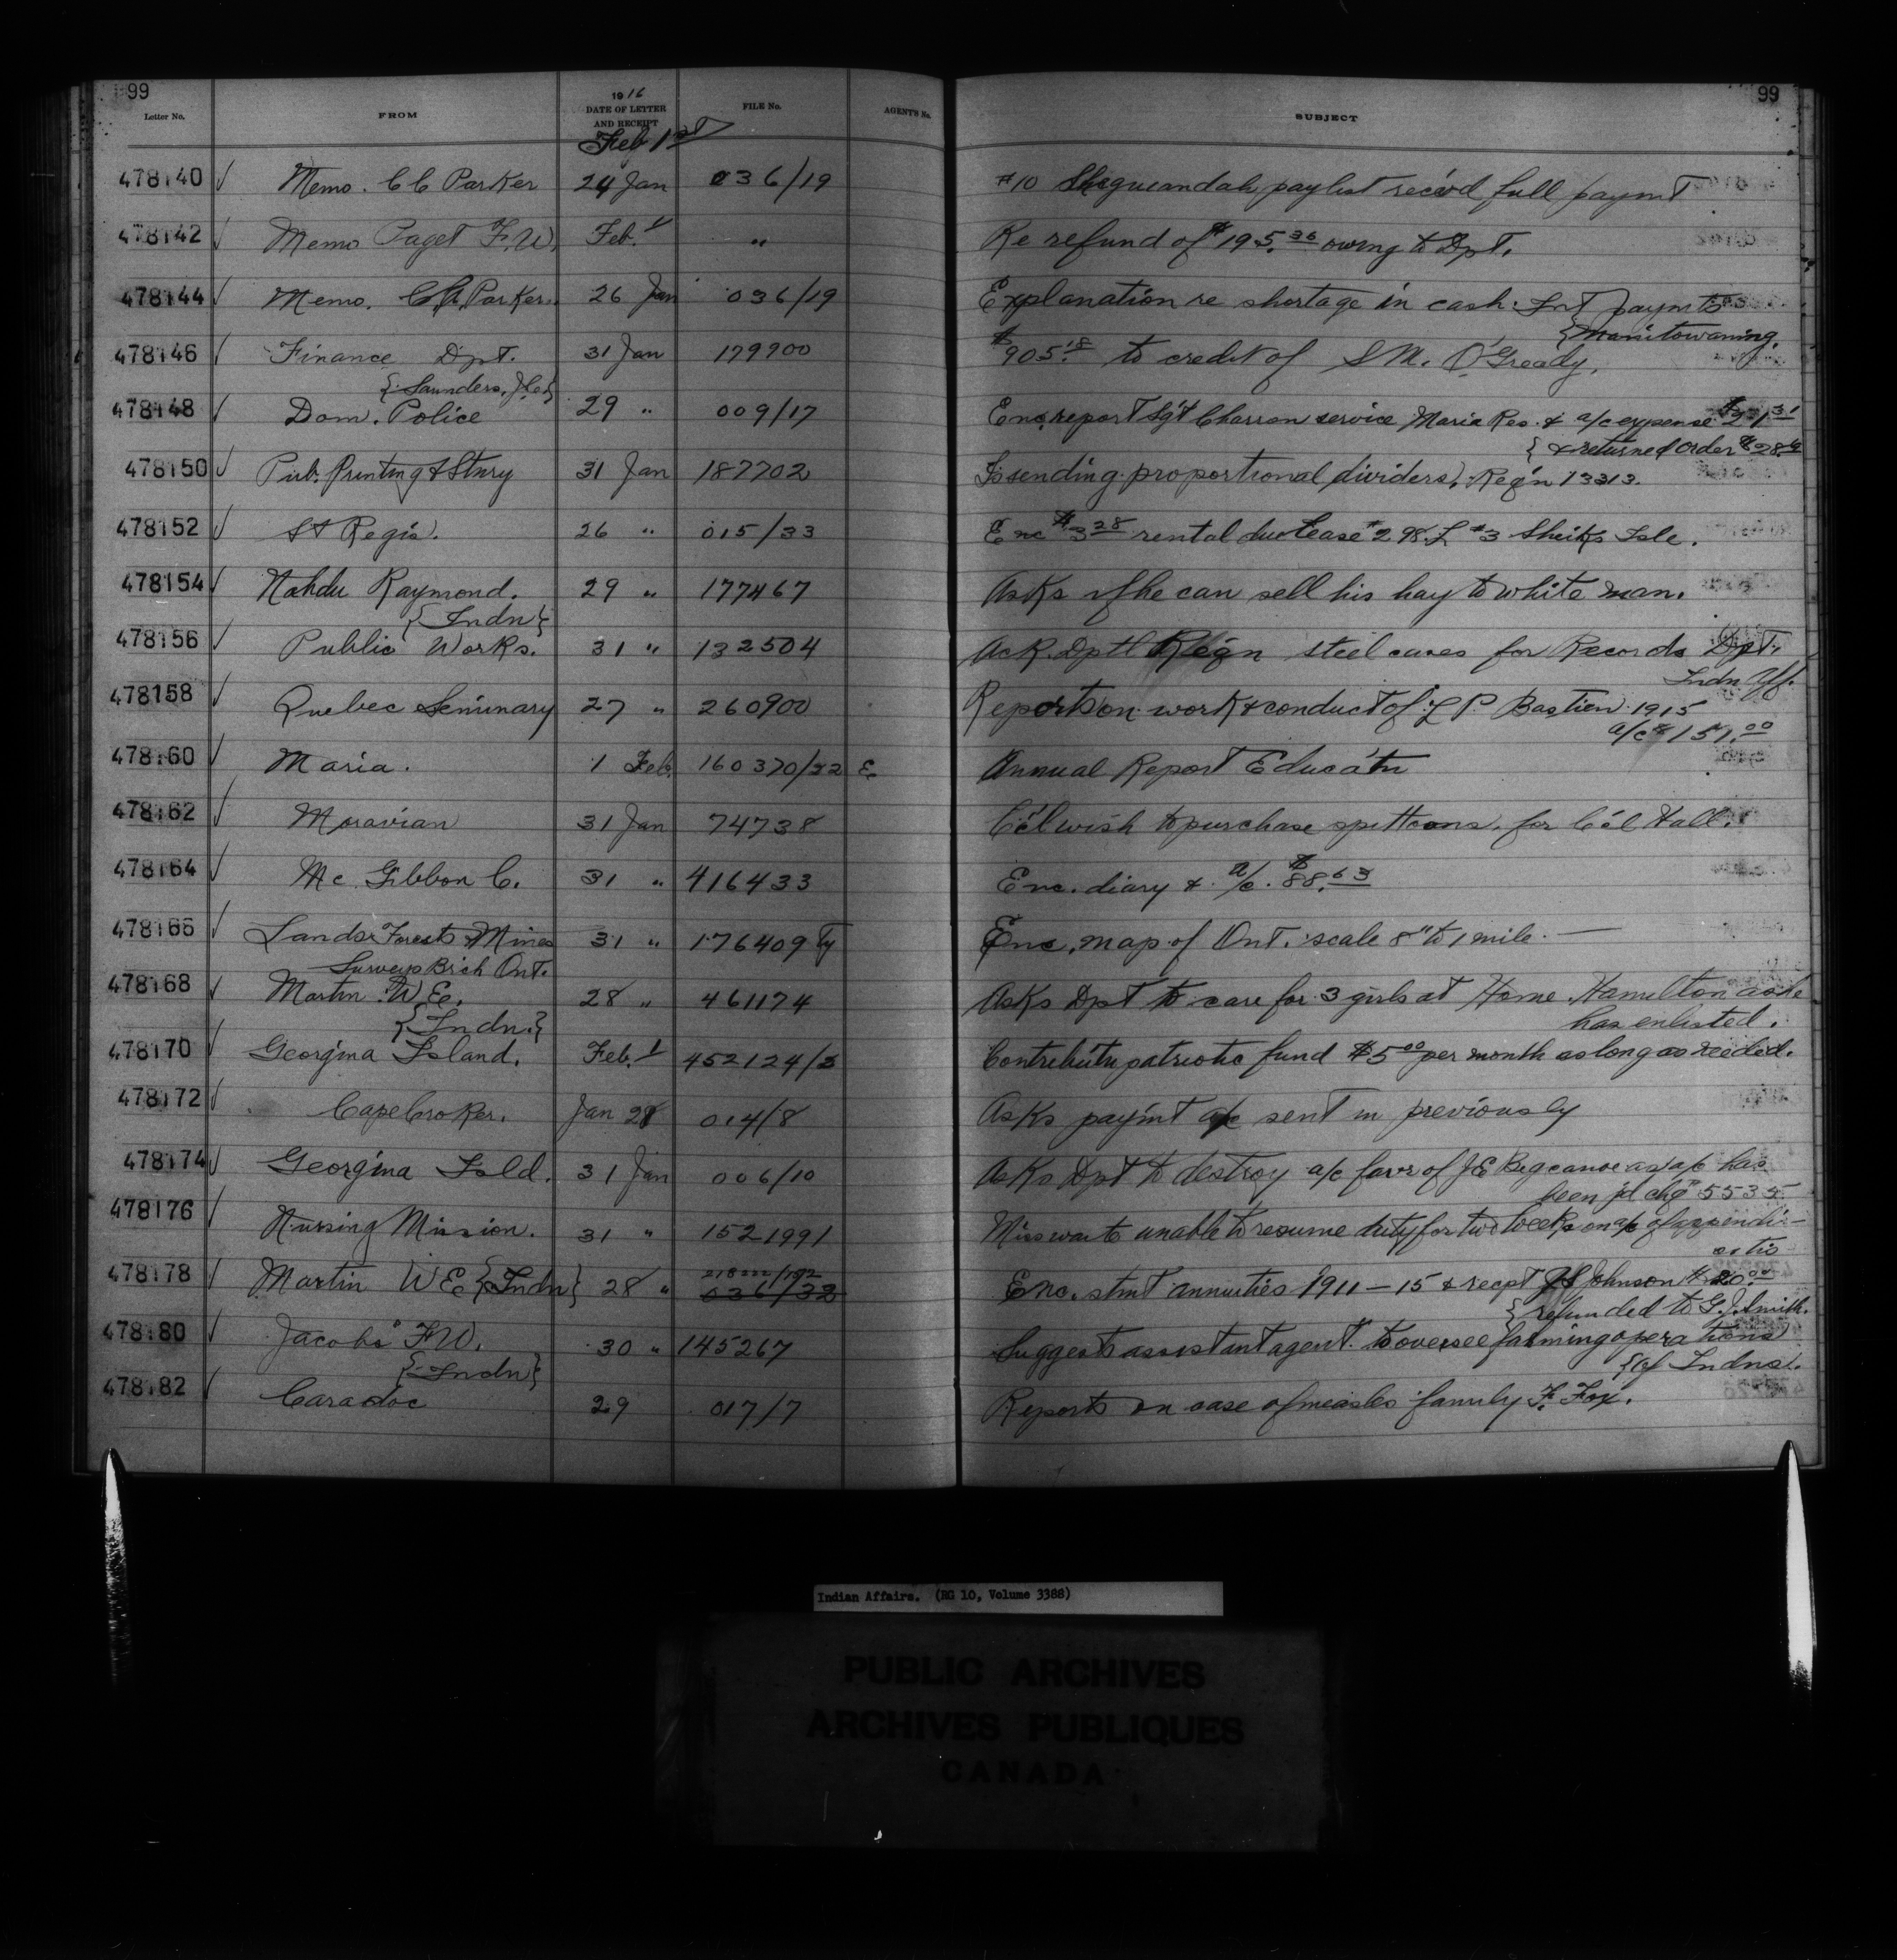 99 99
Letter No. FROM 1916 DATE OF LETTER AND RECEIPT FILE No. AGENT'S No. SUBJECT
Feb 1st
478140 ✓ Memo. C C Parker 24 Jan 036/19 #10 Sheguiandah paylist rec'vd full paym't
478142 ✓ Memo Paget F.W. Feb. 1 " Re refund of $195.36 owing to Dpt.
478144 ✓ Memo. C C Parker. 26 Jan 036/19 Explanation re shortage in cash. Int paymts
{Manitowaning.
478146 ✓ Finance Dpt. 31 Jan 179900 $905.18 to credit of S M. O'Gready.
{Saunders, J.C.}
478148 ✓ Dom. Police 29 " 009/17 Enc. report Sgt Charron service Maria Res. & a/c expense $21.31
{& returned order
478150 ✓ Pub. Printing & Stnry 31 Jan 187702 Is sending proportional dividers, Reqn 13313.
478152 ✓ St Regis. 26 " 015/33 Enc $3.28 rental due Lease #298. L #3 Sheiks Isle.
478154 ✓ Nahdu Raymond. 29 " 177467 Asks if he can sell his hay to white man.
{Indn}
478156 ✓ Public Works. 31 " 132504 Ack. Dptl Reqn steel cases for Records Dpt.
Indn Aff.
478158 ✓ Quebec Seminary 27 " 260900 Reports on work & conduct of L P. Bastien 1915
a/c $151.00
478160 ✓ Maria. 1 Feb. 160370/22 E Annual Report Educat'n
478162 ✓ Moravian 31 Jan 74738 C'c'l wish to purchase spittoons. for C'c'l Hall.
478164 ✓ Mc Gibbon C. 31 " 416433 Enc. diary & a/c. $88.63
478166 ✓ Lands Forests & Mines 31 " 176409 Ty Enc. map of Ont. scale 8" to 1 mile. —
Surveys Br'ch Ont.
478168 ✓ Martin W.E. 28 " 461174 Asks Dpt to care for 3 girls at Home. Hamilton as he
{Indn.} has enlisted.
478170 ✓ Georgina Island. Feb. 1 452124/3 Contribut'n patriotic fund $5.00 per month as long as needed.
478172 ✓ Cape Croker. Jan 28 014/8 Asks paym't a/c sent in previously
478174 ✓ Georgina Isld. 31 Jan 006/10 Asks Dpt to destroy a/c favr of J E Bigcanoe as a/c has
been p'd chq 5535
478176 ✓ Nursing Mission. 31 " 1521991 Miss unable to resume duty for two weeks on a/c of appendi-
citis
478178 ✓ Martin W E {Indn} 28 " 218222/192 036/32 Enc. stmt annuities 1911–15 & recpt Johnson $20.00
{refunded to G. J. Smith.
478180 ✓ Jacobs F.W. 30 " 145267 Suggests assistant agent. to oversee farming operations
{Indn} {of Indns.
478182 ✓ Caradoc 29 017/7 Reports on case of measles family F. Fox.
Indian Affairs. (RG 10, Volume 3388)
PUBLIC ARCHIVES
ARCHIVES PUBLIQUES
CANADA